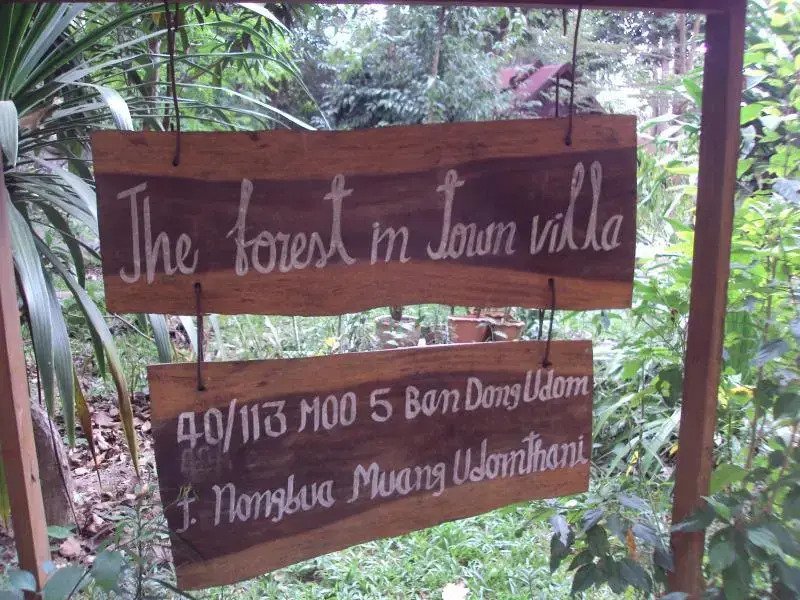 The forest in Town villa
40/113 MOO 5 Ban Dong Udom
t. Nongbua Muang Udomthani